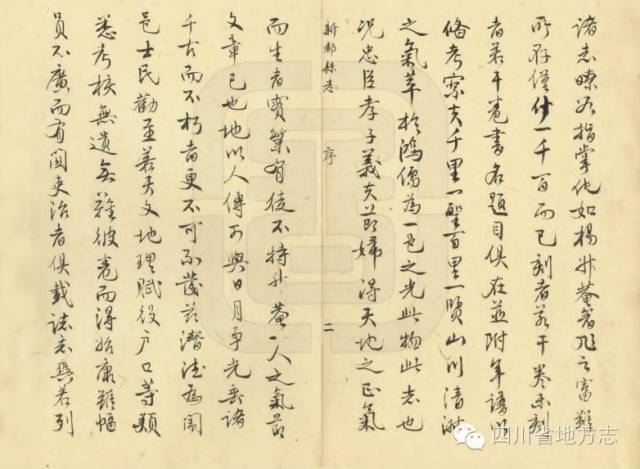 諸志瞭若指掌他如楊升菴著述之富雖
所存僅什一千百而已刻者若干卷未刻
者若干卷書名題目俱在並附年譜以
備考察夫千里一聖百里一賢山川清淑
之氣萃於鴻儒為一邑之光此物此志也
況忠臣孝子義夫節婦得天地之正氣
新都縣志 序 二
而生者實繁有徒不特升菴一人之氣節
文章已也地以人傳可與日月爭光垂諸
千古而不朽者更不可不茲潛德為闔
邑士民勸至若天文地理賦役戶口等類
悉考核無遺無難卷而得始康雖幅
員不廣而有關吏治者俱載志若列
四川省地方志